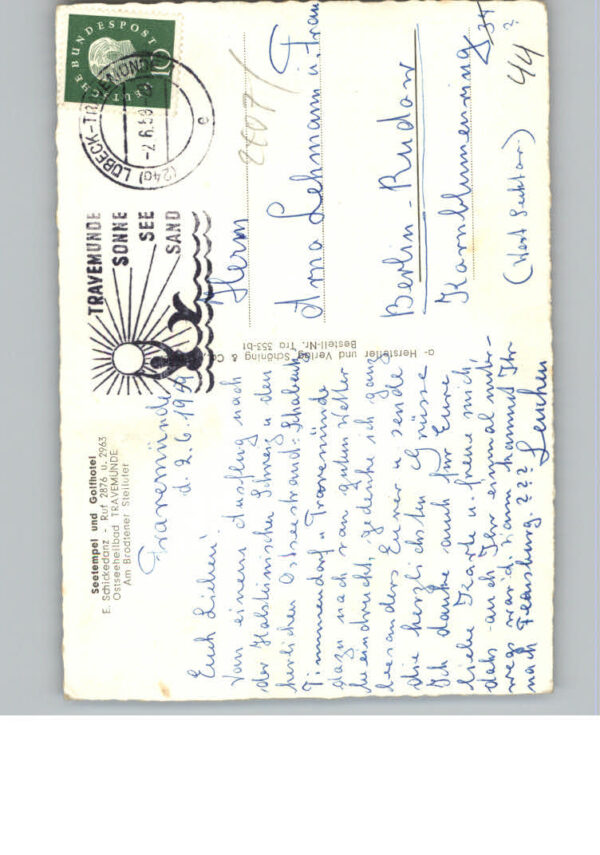 Seetempel und Golfhotel
E. Schickedanz - Ruf 2876 u. 2963
Ostseeheilbad TRAVEMÜNDE
Am Brodtener Steilufer
Travemünde
d. 2.6.1959
Euch Lieben!
Von einem Ausflug nach
der Holsteinischen Schweiz u. den
herrlichen Ostseestrand:
Timmendorf u. Travemünde
dazu noch von gutem Wetter
beeindruckt, gedenke ich ganz
besonders Eurer u. sende
die herzlichsten Grüsse
Ich danke auch für Eure
liebe Karte u. freue mich,
daß auch Ihr einmal unter-
wegs ward. Wann kommt Ihr
nach Flensburg ???
Lenchen
a- Hersteller und Verlag Schöning & Co.
Bestell-Nr. Tra 353-bt
DEUTSCHE BUNDESPOST
10
(24a) LÜBECK-TRAVEMÜNDE
-2.6.59
c
TRAVEMÜNDE
SONNE
SEE
SAND
Herrn
Arno Lehmann u. Frau
Berlin-Rudow
Kornblumenring
34
?
44
(West Sektor)